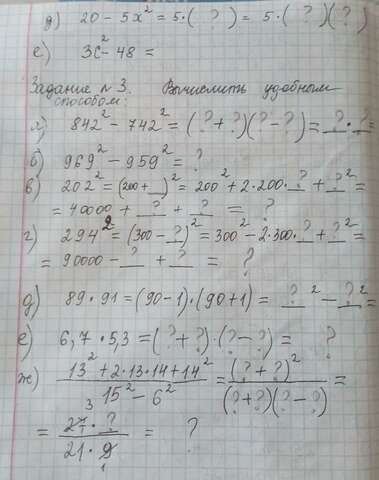 д) 20 - 5x² = 5·( ? ) = 5·( ? )( ? )
е) 3с² - 48 =
Задание №3. Вычислить удобным
способом:
а) 842² - 742² = ( ? + ? )( ? - ? ) = ? · ?
б) 969² - 959² = ?
в) 202² = (200 + _)² = 200² + 2·200·_ + _² =
= 40000 + ? + ? = ?
г) 294² = (300 - ?)² = 300² - 2·300·? + ?² =
= 90000 - _ + ? = ?
д) 89·91 = (90-1)·(90+1) = ?² - ?² =
е) 6,7·5,3 = (? + ?)·(? - ?) = ?
ж) 13² + 2·13·14 + 14² / 15² - 6² = (? + ?)² / (? + ?)(? - ?) =
= 27·? / 21·9 = ?
3
1